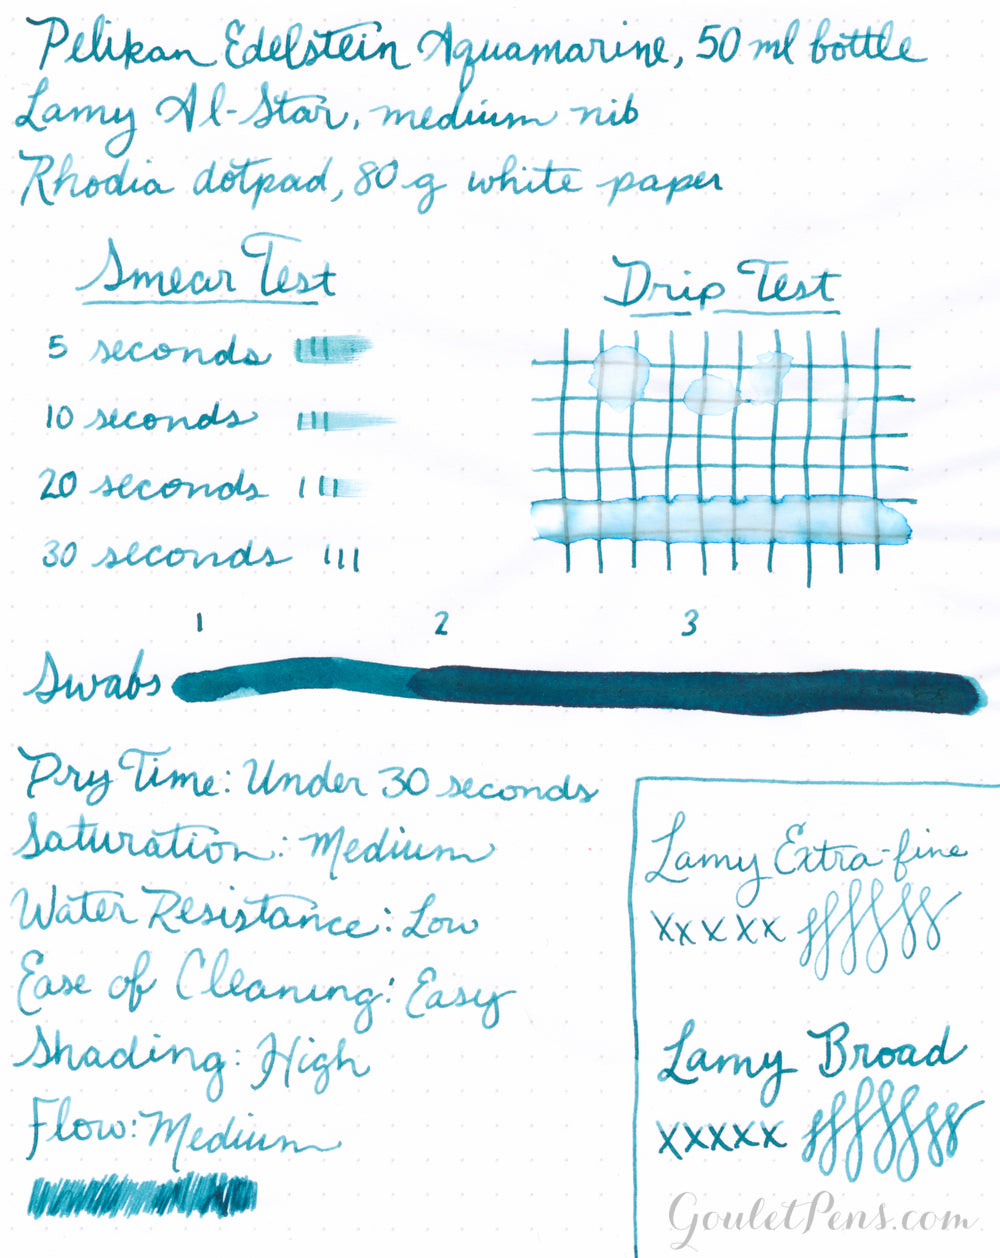 Pelikan Edelstein Aquamarine, 50 ml bottle
Lamy Al-Star, medium nib
Rhodia dotpad, 80 g white paper
Smear Test
5 seconds
10 seconds
20 seconds
30 seconds
Drip Test
1 2 3
Swabs
Dry Time: Under 30 seconds
Saturation: Medium
Water Resistance: Low
Ease of Cleaning: Easy
Shading: High
Flow: Medium
Lamy Extra-fine
xxxxx
Lamy Broad
xxxxx
GouletPens.com